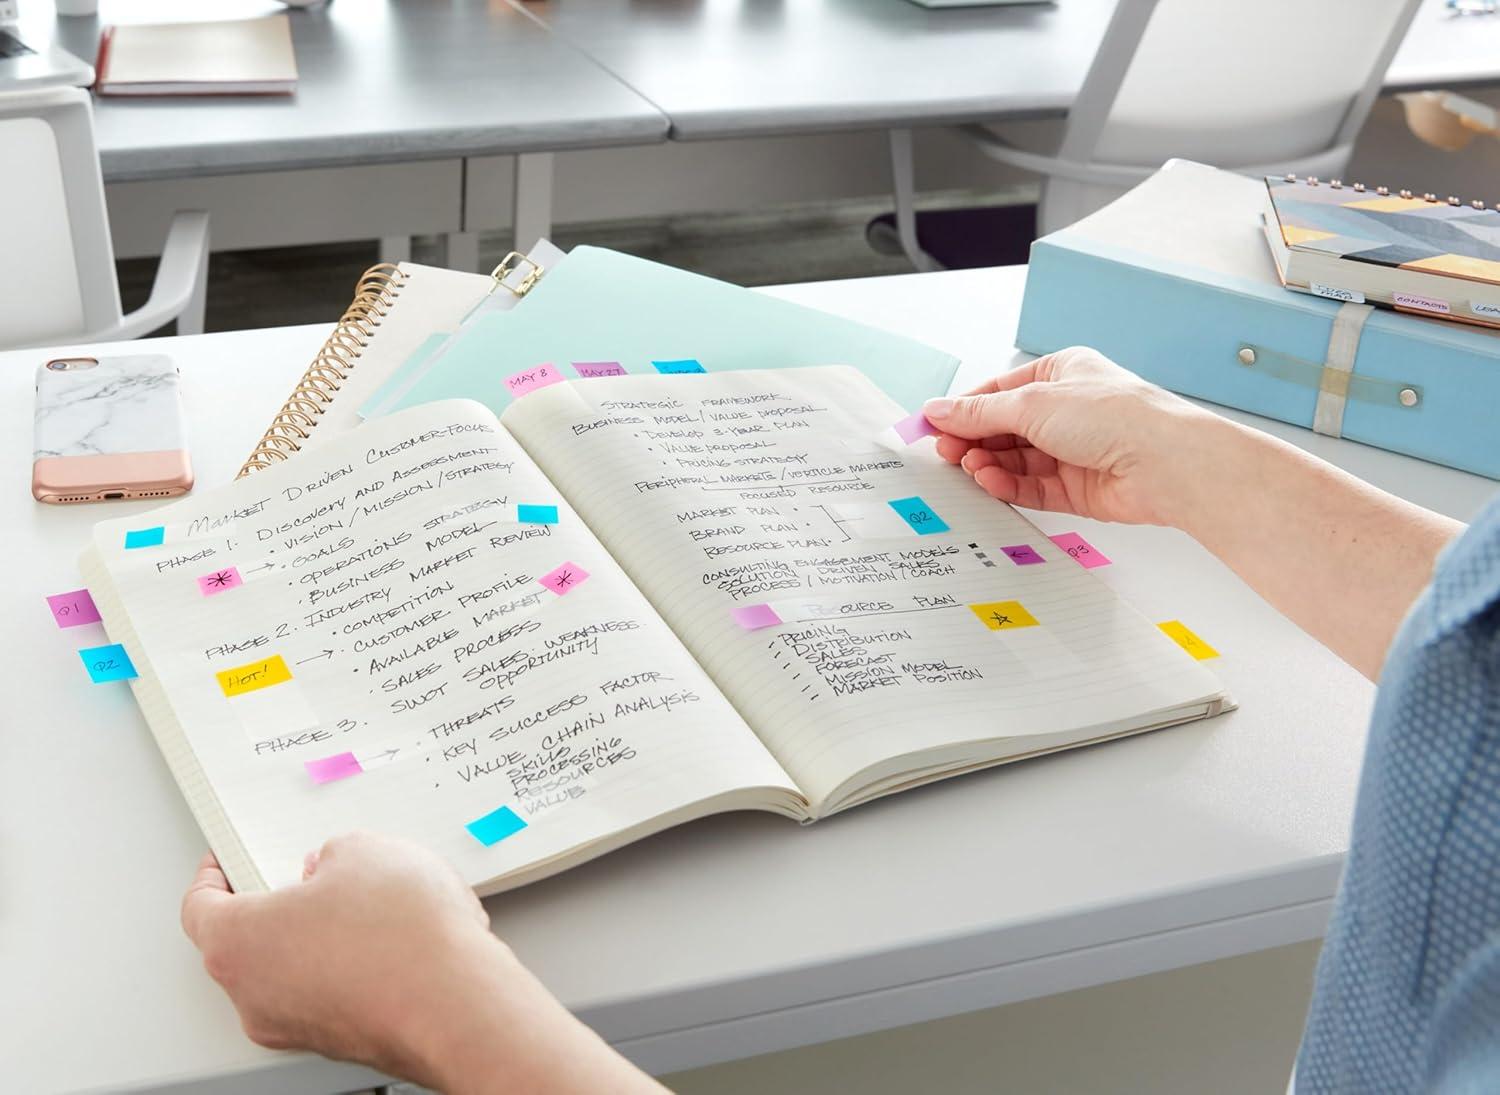 MAY 8
MAY 27
MARKET DRIVEN CUSTOMER-FOCUS
PHASE 1. DISCOVERY AND ASSESSMENT
• VISION / MISSION / STRATEGY
→ • GOALS
• OPERATIONS STRATEGY
• BUSINESS MODEL
PHASE 2. INDUSTRY MARKET REVIEW
• COMPETITION
HOT! → • CUSTOMER PROFILE
• AVAILABLE MARKET
• SALES PROCESS
SWOT SALES: WEAKNESS
OPPORTUNITY
PHASE 3. • THREATS
→ • KEY SUCCESS FACTOR
• VALUE CHAIN ANALYSIS
SKILLS
PROCESSING
RESOURCES
VALUE
Q1
Q2
STRATEGIC FRAMEWORK
BUSINESS MODEL / VALUE PROPOSAL
• DEVELOP 3-YEAR PLAN
• VALUE PROPOSAL
• PRICING STRATEGY
PERIPHERAL MARKETS / VERTICLE MARKETS
FOCUSED RESOURCE
MARKET PLAN •
BRAND PLAN •
RESOURCE PLAN •
Q2
CONSULTING ENGAGEMENT MODELS
SOLUTION DRIVEN SALES
PROCESS / MOTIVATION / COACH
←
Q3
RESOURCE PLAN
PRICING
DISTRIBUTION
SALES
FORECAST
MISSION MODEL
MARKET POSITION
IDEA MAP
CONTACTS